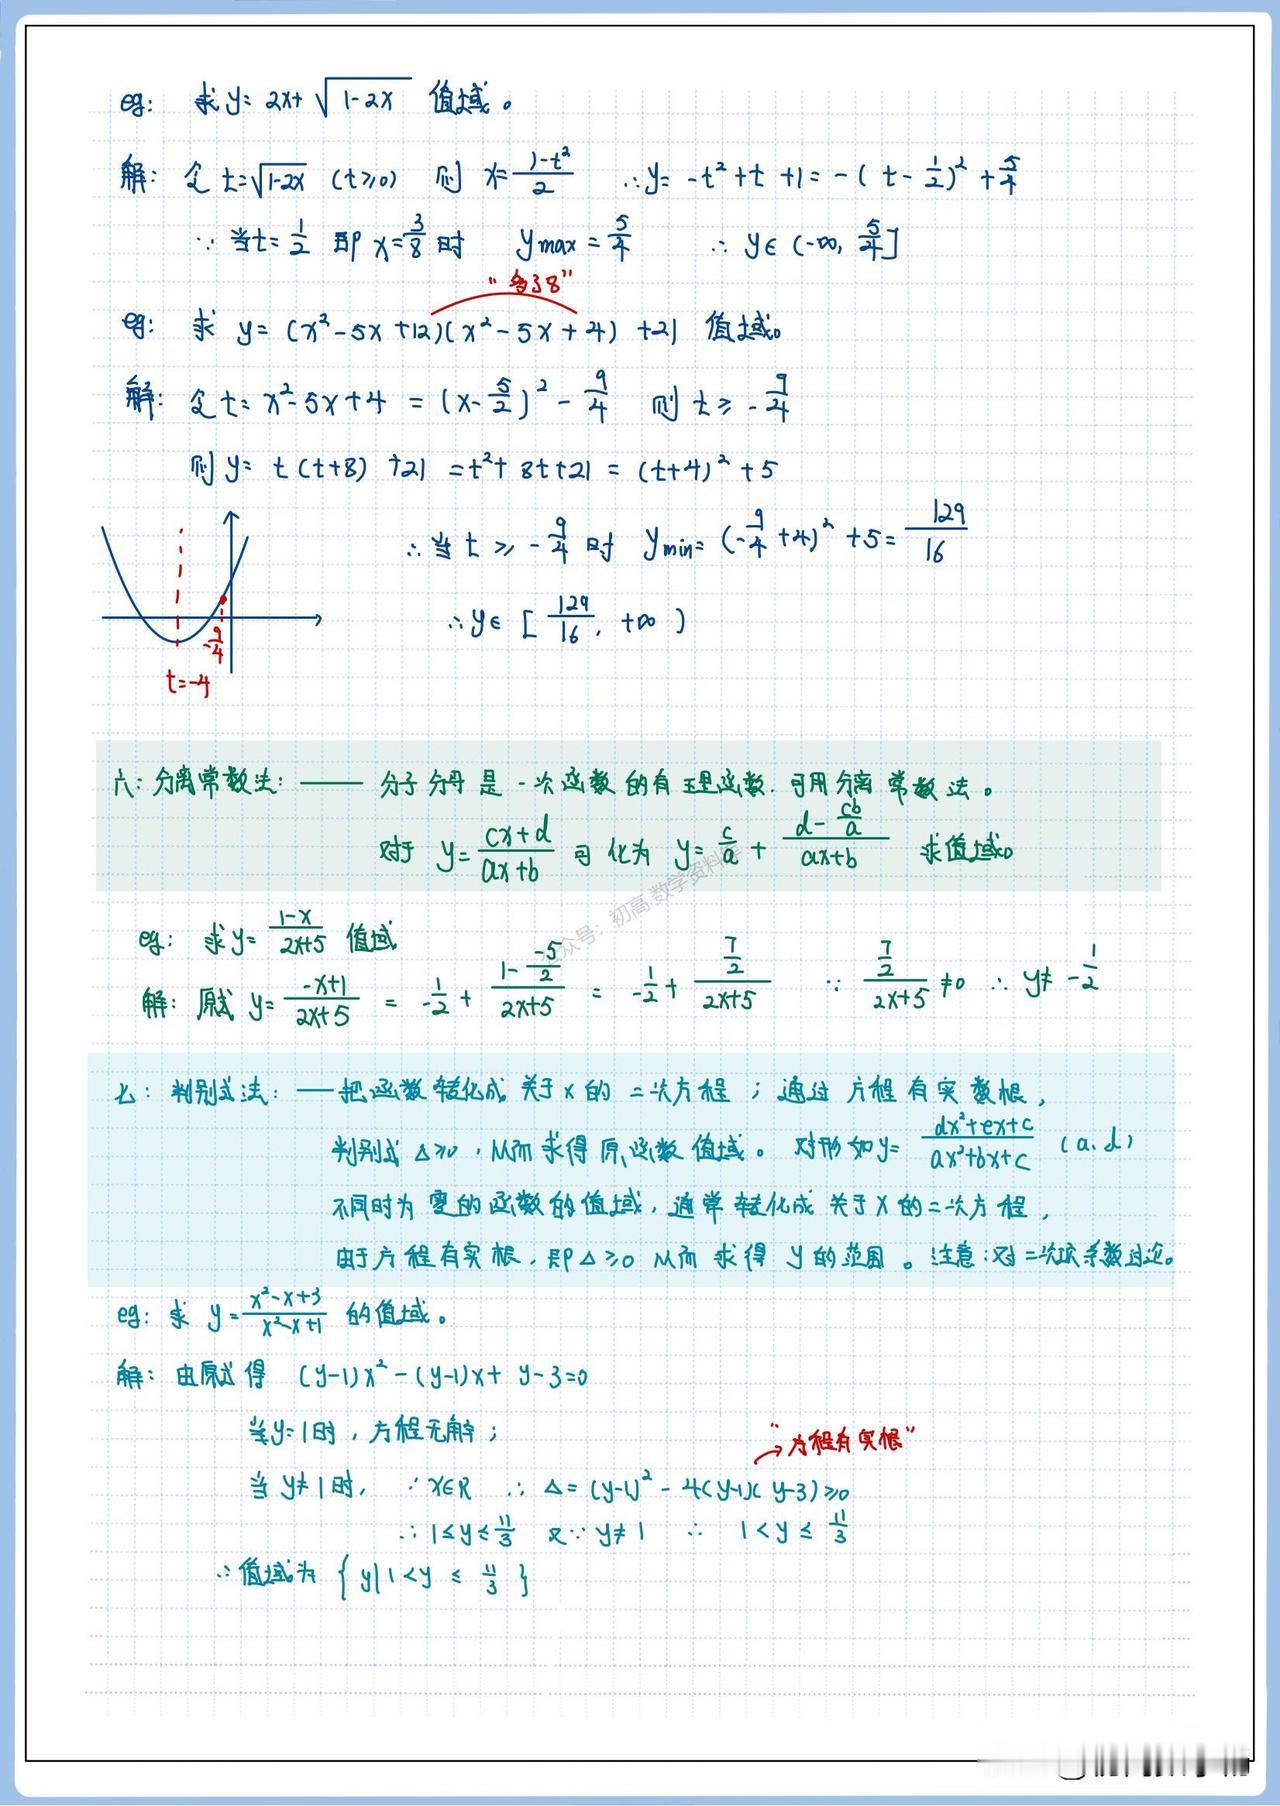 eg: 求 y= 2x+√(1-2x) 值域。
解: 令 t=√(1-2x) (t≥0) 则 x=(1-t²)/2 ∴y= -t²+t+1= -(t-1/2)²+5/4
∵ 当t=1/2 即 x=3/8 时 ymax=5/4 ∴ y∈(-∞, 5/4]
"多了8"
eg: 求 y= (x²-5x+12)(x²-5x+4)+21 值域。
解: 令 t= x²-5x+4 = (x-5/2)²-9/4 则 t≥-9/4
则 y= t(t+8)+21 =t²+8t+21= (t+4)²+5
∴当 t≥-9/4 时 ymin= (-9/4+4)²+5=129/16
∴y∈[129/16, +∞)
-9/4
t=-4
六: 分离常数法: —— 分子分母是一次函数的有理函数.可用分离常数法。
对于 y=(cx+d)/(ax+b) 可化为 y=c/a+(d-cb/a)/(ax+b) 求值域。
公众号：初高数学资料库
eg: 求y=(1-x)/(2x+5) 值域
解: 原式 y=(-x+1)/(2x+5) = -1/2+(1--5/2)/(2x+5) = -1/2+(7/2)/(2x+5) ∵ (7/2)/(2x+5)≠0 ∴ y≠-1/2
七: 判别式法: —— 把函数转化成关于x的二次方程；通过方程有实数根,
判别式△≥0,从而求得原函数值域。对形如y=(dx²+ex+c)/(ax²+bx+c) (a.d)
不同时为零的函数的值域,通常转化成关于x的二次方程,
由于方程有实根,即△≥0从而求得y的范围。注意:对二次项系数讨论。
eg: 求 y=(x²-x+3)/(x²-x+1) 的值域。
解: 由原式得 (y-1)x²-(y-1)x+y-3=0
当y=1时,方程无解;
"方程有实根"
当 y≠1时, ∵x∈R ∴△=(y-1)²-4(y-1)(y-3)≥0
∴1≤y≤11/3 又∵y≠1 ∴ 1<y≤11/3
∴值域为 {y|1<y≤11/3}